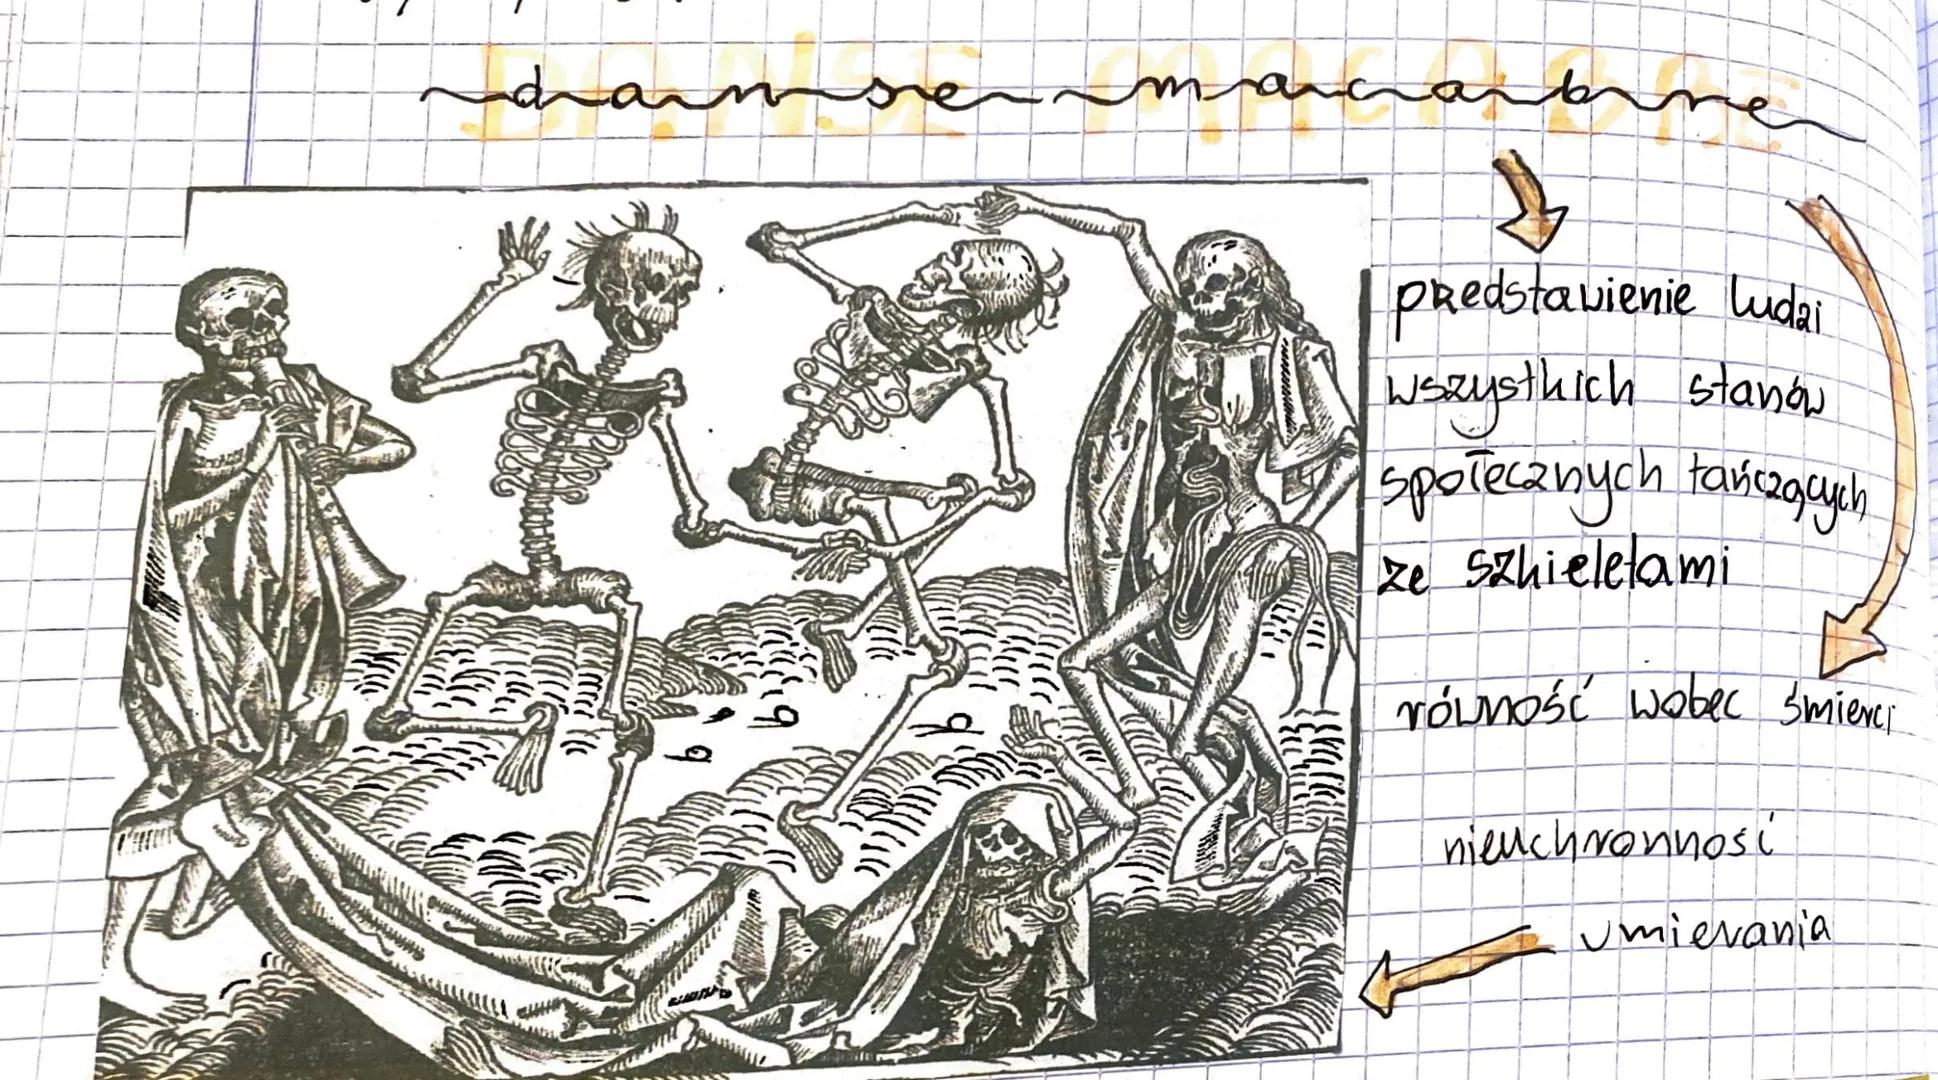 DANSE MACABRE
danse macabre
przedstawienie ludzi
wszystkich stanów
społecznych tańczących
ze szkieletami
równość wobec śmierci
nieuchronność
umierania